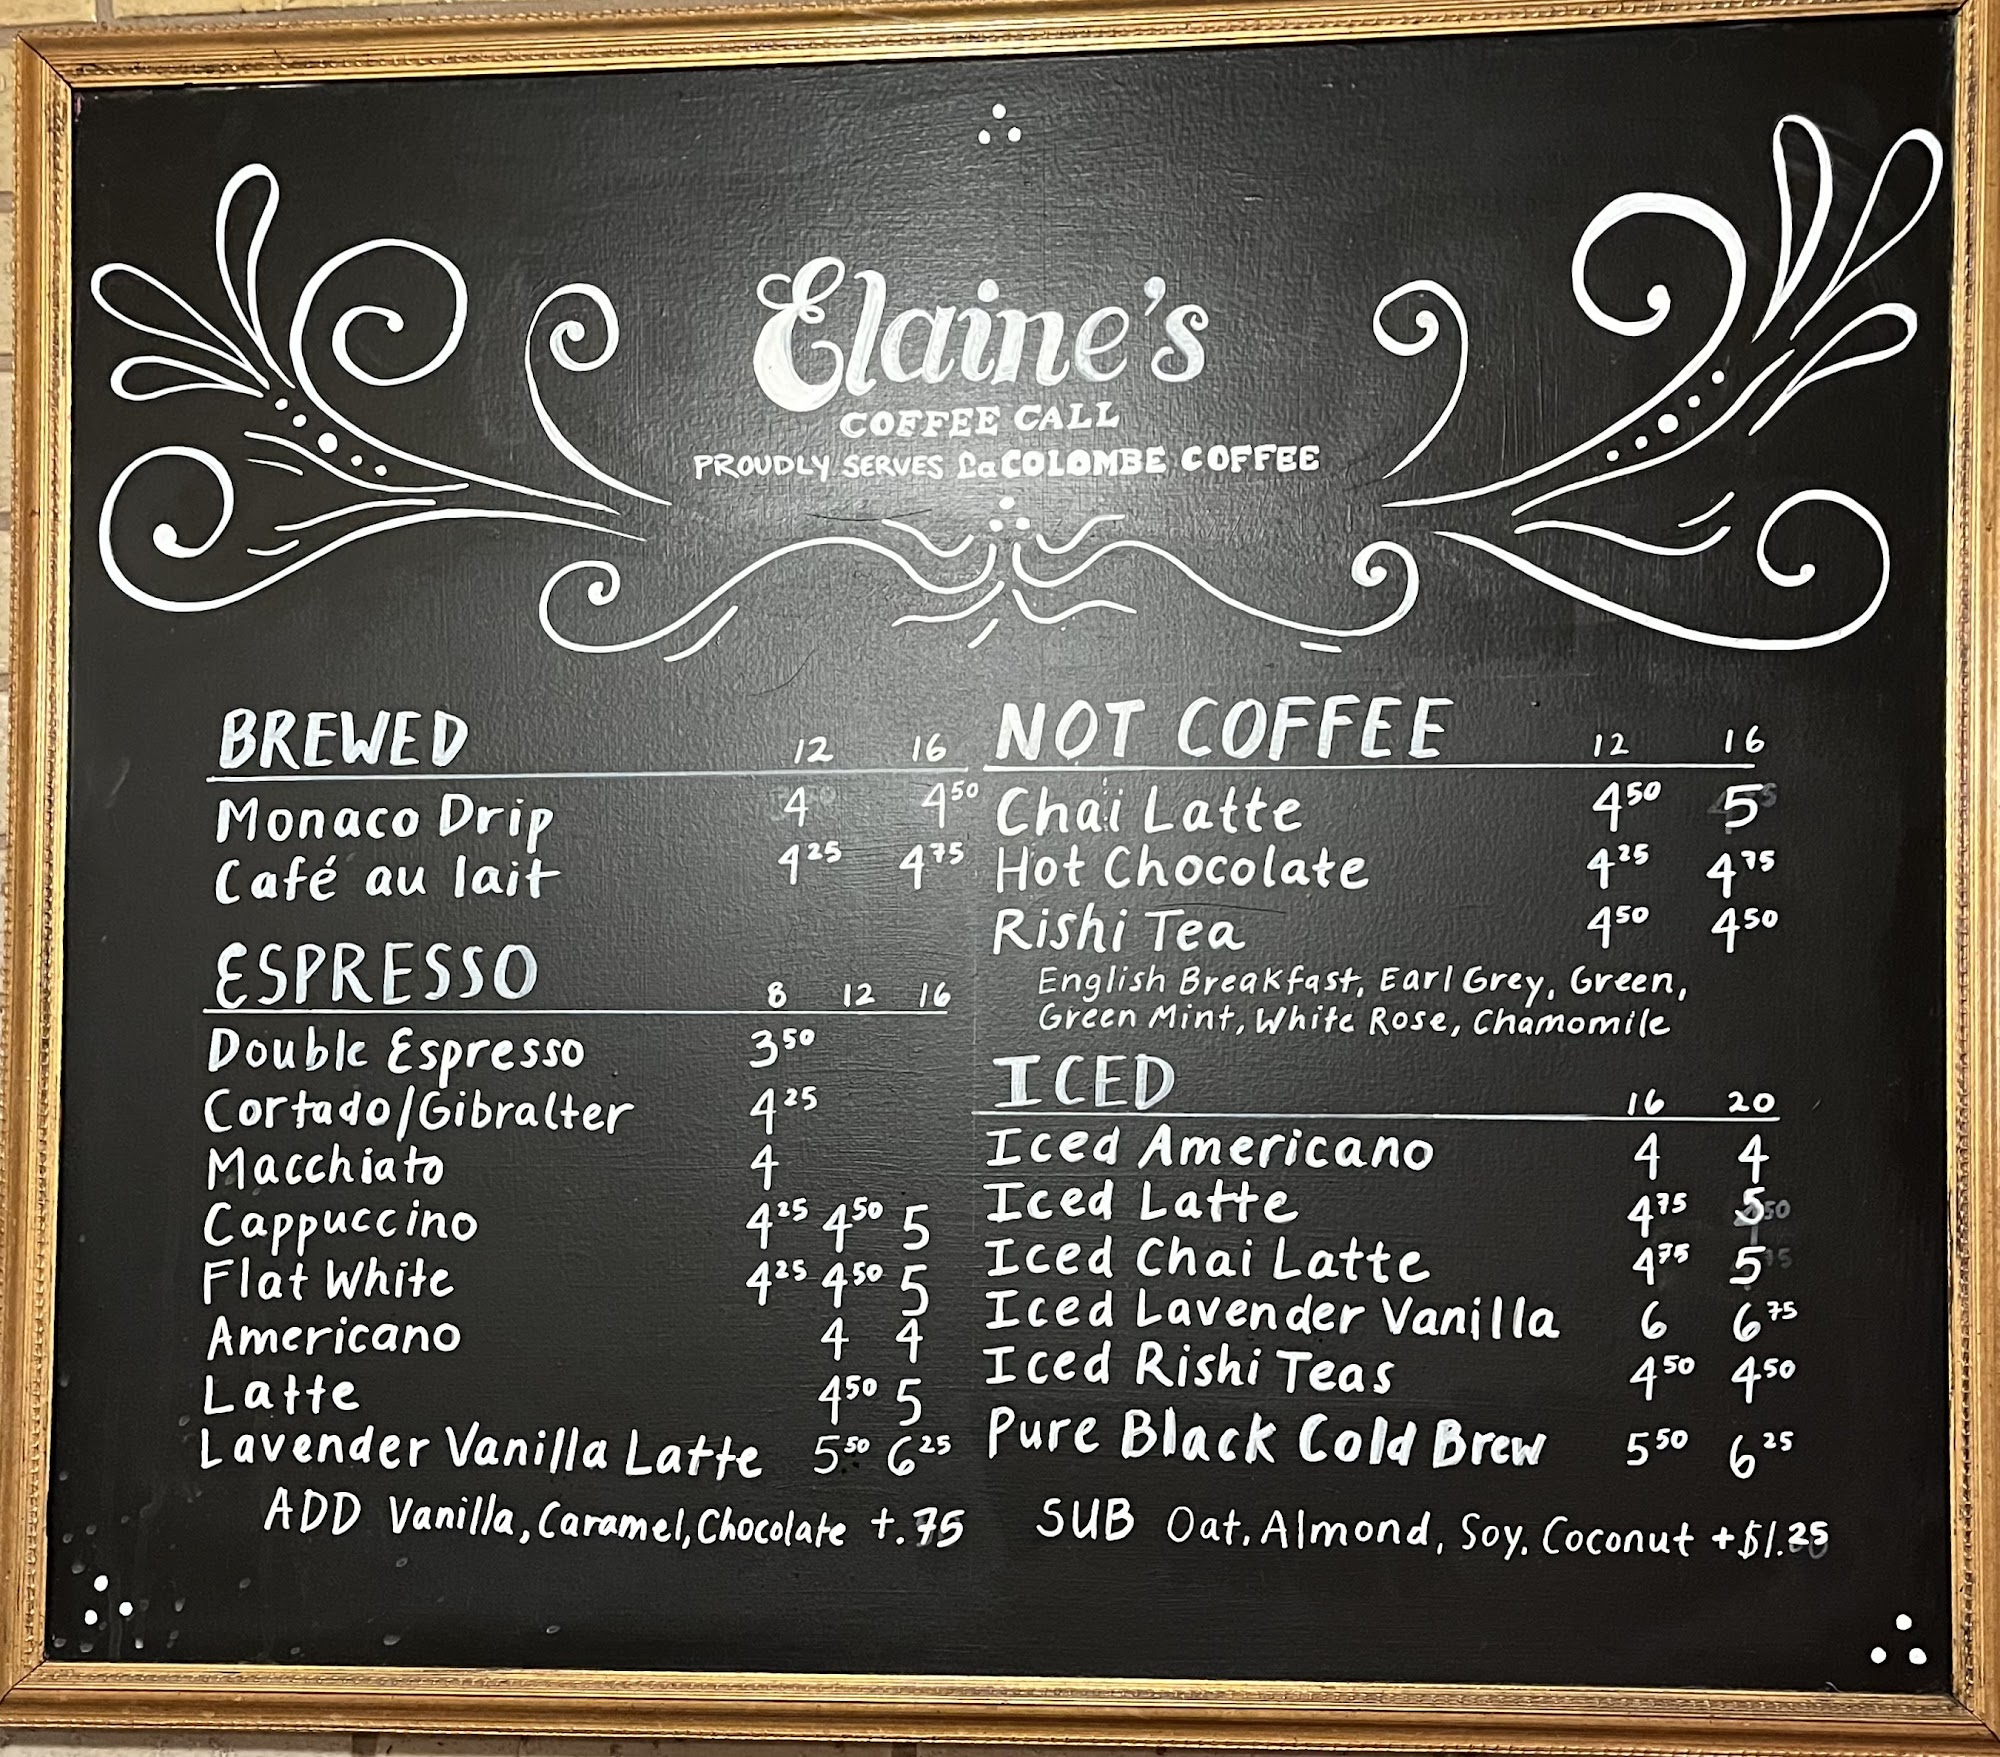 Elaine's
COFFEE CALL
PROUDLY SERVES La COLOMBE COFFEE
BREWED 12 16
Monaco Drip 4 4.50
Café au lait 4.25 4.75
ESPRESSO 8 12 16
Double Espresso 3.50
Cortado/Gibralter 4.25
Macchiato 4
Cappuccino 4.25 4.50 5
Flat White 4.25 4.50 5
Americano 4 4
Latte 4.50 5
Lavender Vanilla Latte 5.50 6.25
ADD Vanilla, Caramel, Chocolate +.75
NOT COFFEE 12 16
Chai Latte 4.50 5
Hot Chocolate 4.25 4.75
Rishi Tea 4.50 4.50
English Breakfast, Earl Grey, Green,
Green Mint, White Rose, Chamomile
ICED 16 20
Iced Americano 4 4
Iced Latte 4.75 5
Iced Chai Latte 4.75 5
Iced Lavender Vanilla 6 6.75
Iced Rishi Teas 4.50 4.50
Pure Black Cold Brew 5.50 6.25
SUB Oat, Almond, Soy, Coconut +$1.25